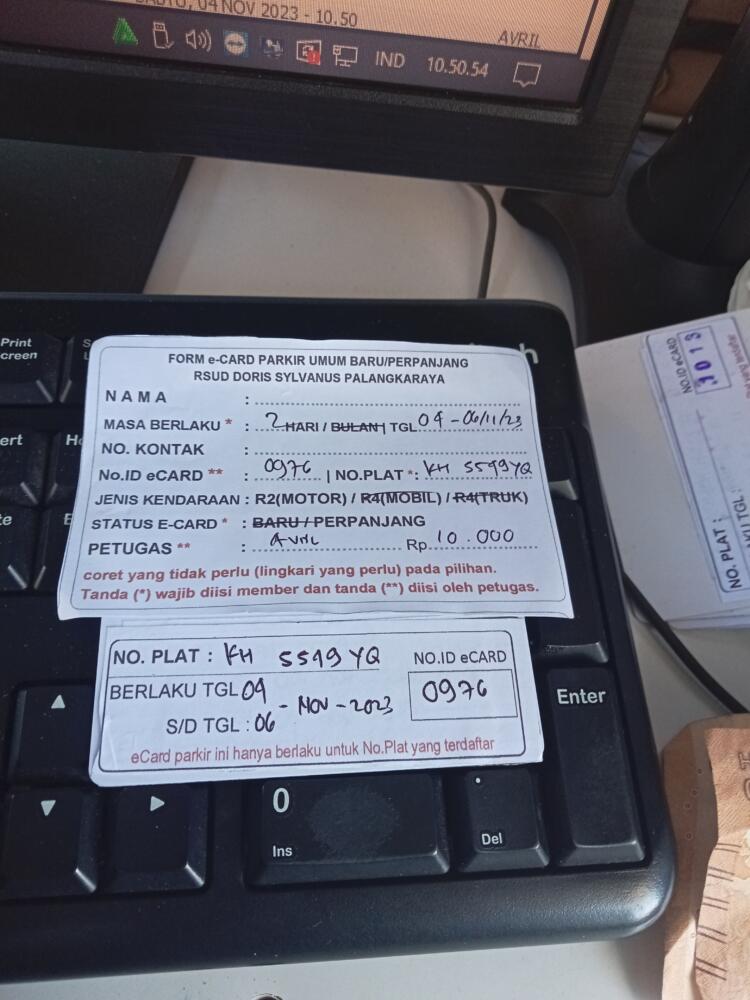 04 NOV 2023 - 10.50
AVRIL
IND 10.50.54
Print
creen
FORM e-CARD PARKIR UMUM BARU/PERPANJANG
RSUD DORIS SYLVANUS PALANGKARAYA
NAMA :
MASA BERLAKU * : 2 HARI / BULAN | TGL 04 - 06/11/23
NO. KONTAK :
No.ID eCARD ** : 0976 | NO.PLAT *: KH 5599 YQ
JENIS KENDARAAN : R2(MOTOR) / R4(MOBIL) / R4(TRUK)
STATUS E-CARD * : BARU / PERPANJANG
PETUGAS ** : Avril Rp 10.000
coret yang tidak perlu (lingkari yang perlu) pada pilihan.
Tanda (*) wajib diisi member dan tanda (**) diisi oleh petugas.
NO. PLAT : KH 5599 YQ NO.ID eCARD
BERLAKU TGL 04 - NOV - 2023 0976
S/D TGL : 06
eCard parkir ini hanya berlaku untuk No.Plat yang terdaftar
NO.ID eCARD
3013
NO. PLAT :
TGL :
Enter
0
Ins
.
Del